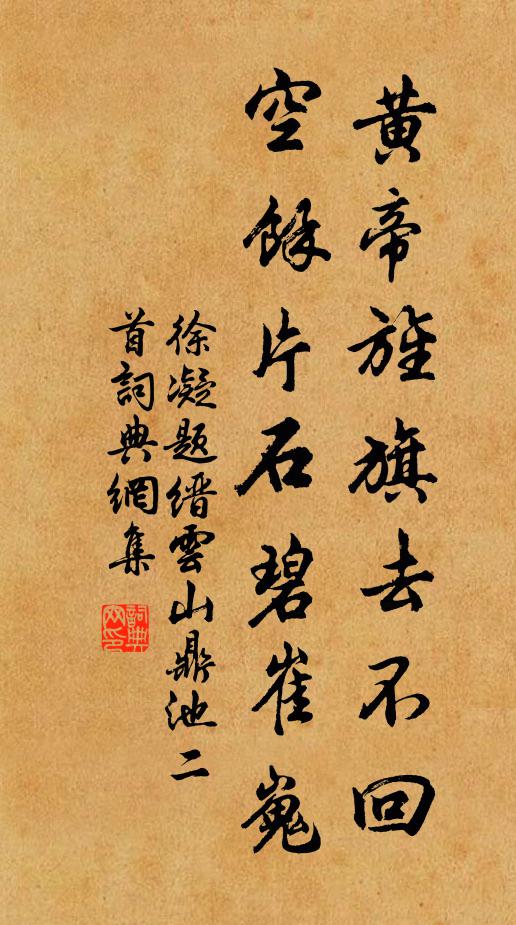 黄帝旌旗去不回
空餘片石碧崔嵬
徐凝题缙雲山鼎池二
首詞典網集
詞典
网印